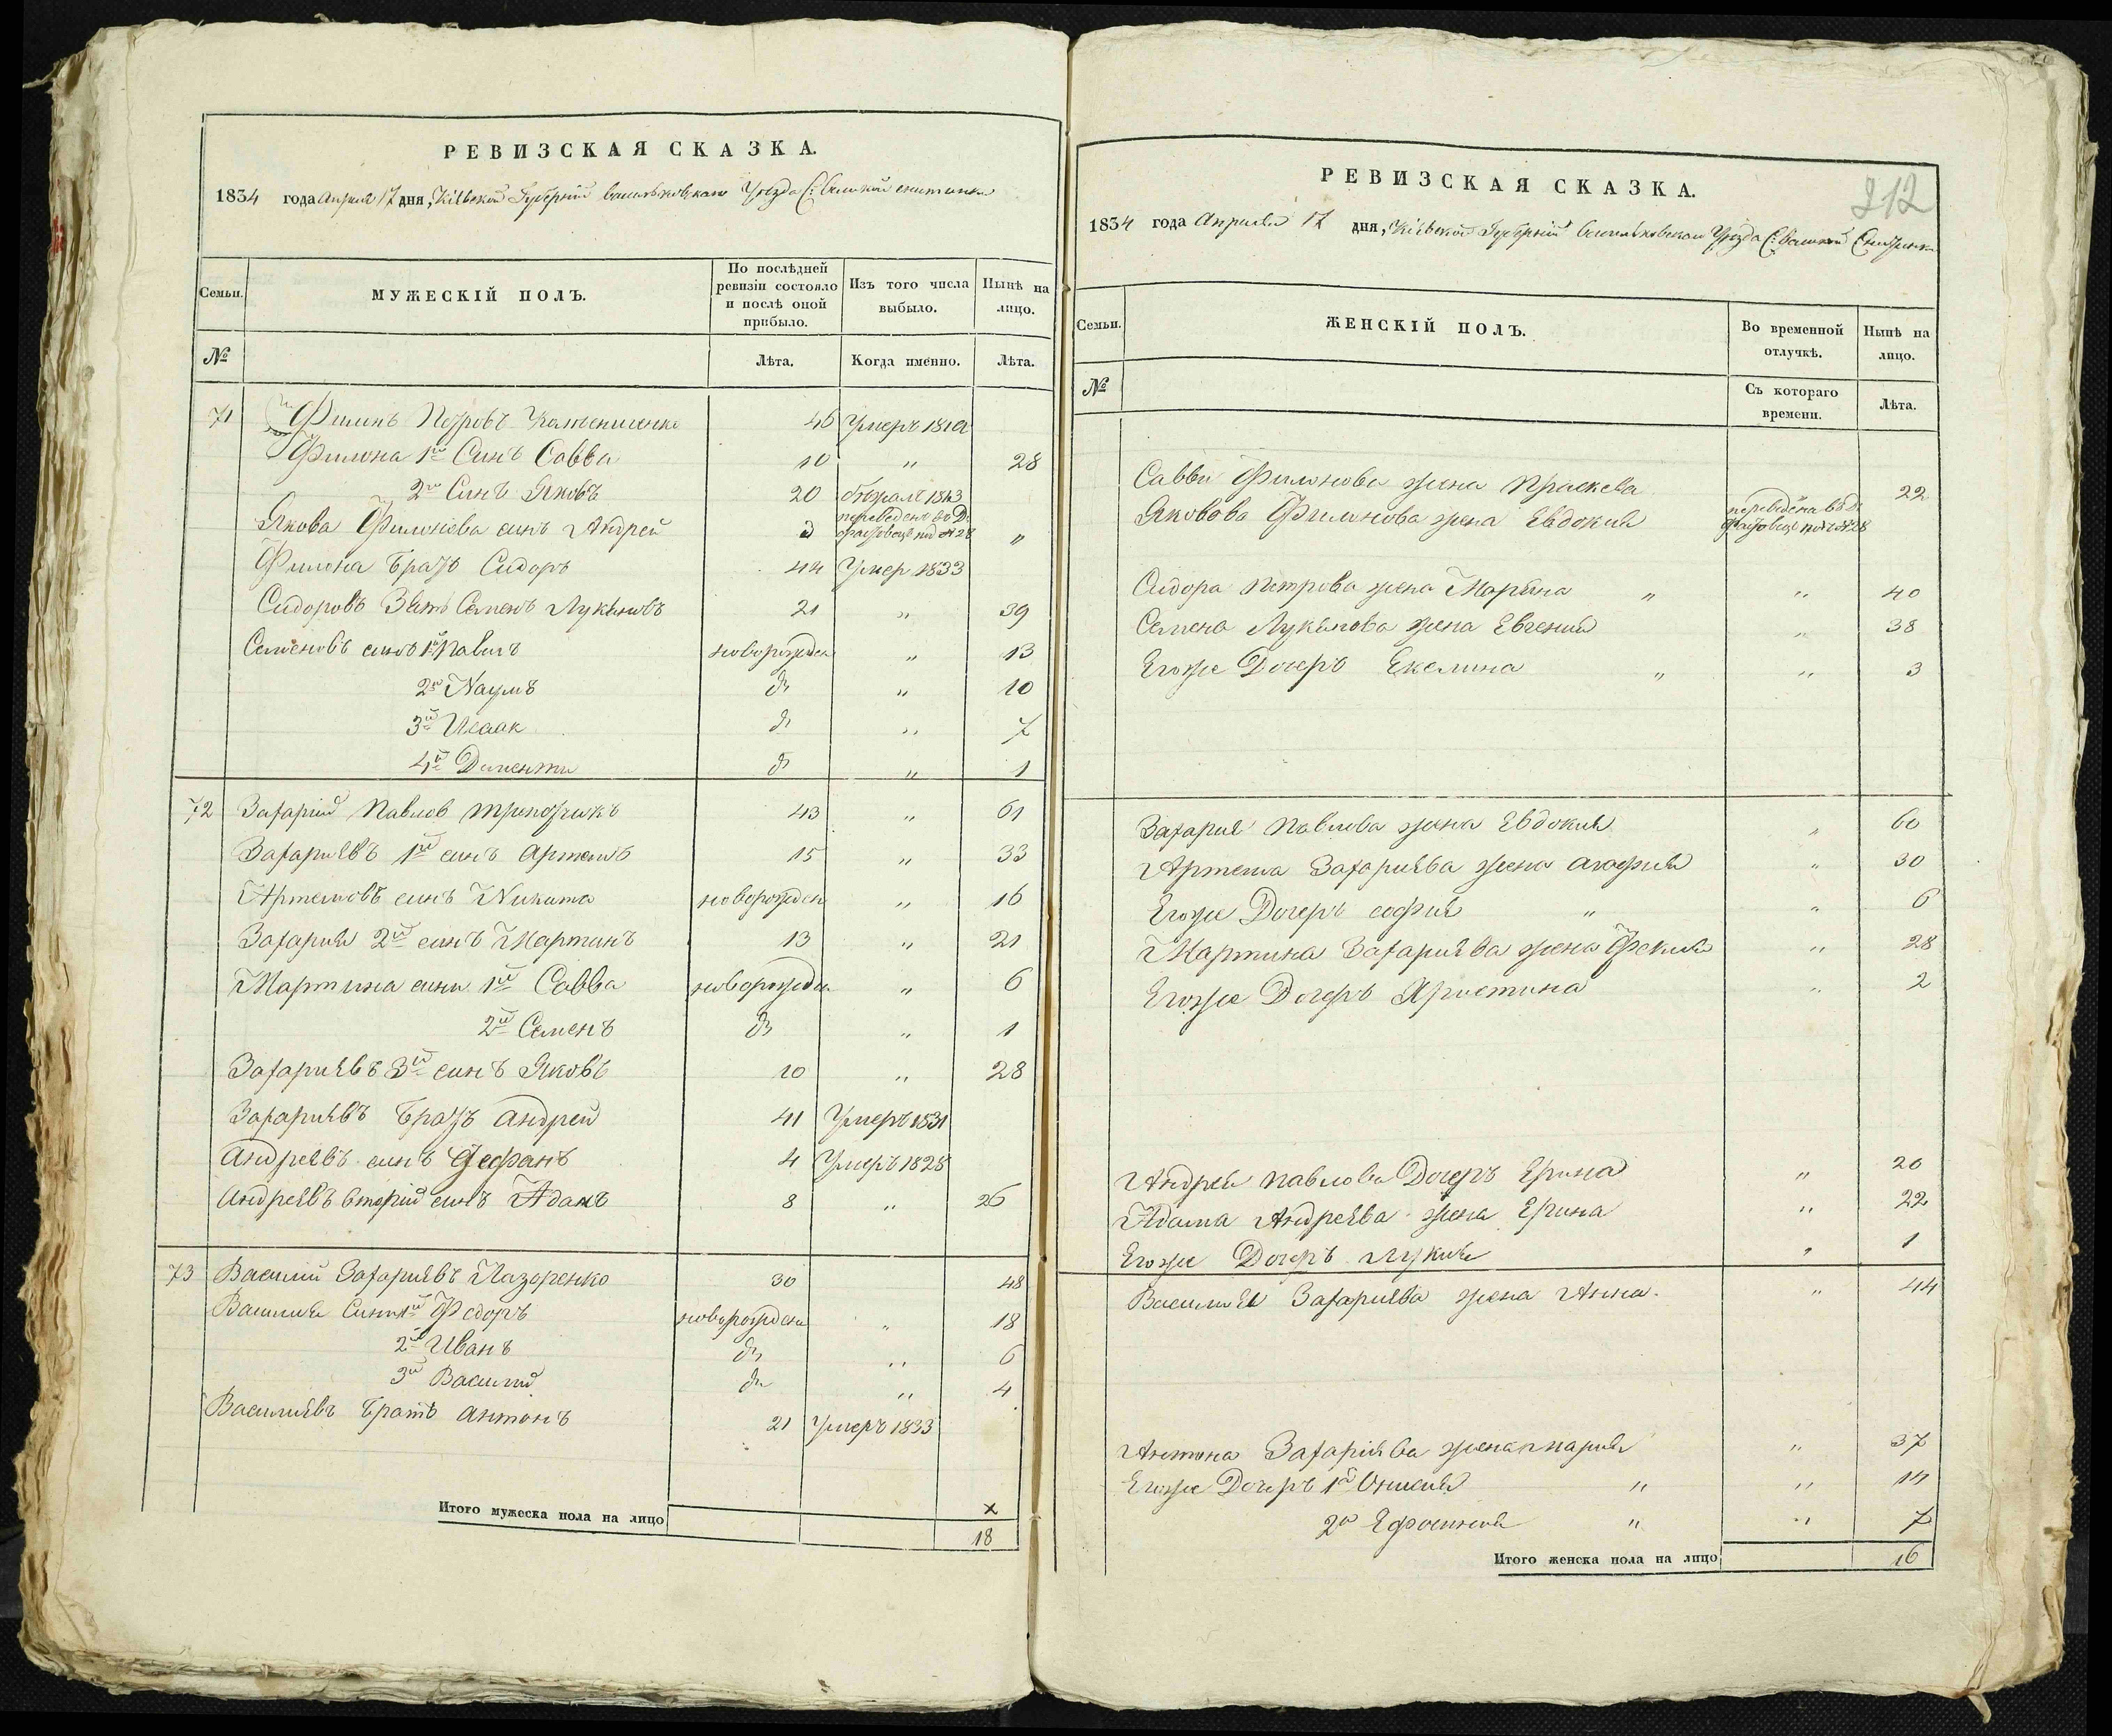 РЕВИЗСКАЯ СКАЗКА.
1834 года Априля 17 дня, Кіевской Губерніи васильковскаго Уезда С: великой снитинки
Семьи.
МУЖЕСКІЙ ПОЛЪ.
По послѣдней ревизіи состояло и послѣ оной прибыло.
Изъ того числа выбыло.
Нынѣ на лицо.
№
Лѣта.
Когда именно.
Лѣта.
71 Филипъ Петровъ 46 Умеръ
Филона 1й Синъ Савва 10 " 28
2й Синъ Яковъ 20 бежалъ
Якова Филонова синъ Андрей 2 переведенъ въ Д: фастовецъ под №28 "
Филона Братъ Сидоръ 44 Умер 1833
Сидоровъ Зять Семенъ Лукяновъ 21 " 39
Семеновъ синъ 1й Павилъ новорожден " 13
2й Наумъ до " 10
3й Исаак до " 7
4й Дименти до " 1
72 Захарій Павлов 43 " 61
Захариевъ 1й синъ Артемъ 15 " 33
Артемовъ синъ Никита новорожден " 16
Захария 2й синъ Мартинъ 13 " 21
Мартина сини 1й Савва новорожден " 6
2й Семенъ до " 1
Захариевъ 3й синъ Яковъ 10 " 28
Захариевъ Братъ Андрей 41 Умеръ 1831
Андреевъ синъ Стефанъ 4 Умеръ 1828
Андреевъ вторій синъ Адамъ 8 " 26
73 Василий Захариевъ Назаренко 30 48
Василия Сини 1й Федоръ новорожден " 18
2й Иванъ до " 6
3й Василий до " 4
Василиевъ Братъ Антонъ 21 Умеръ 1833
Итого мужеска пола на лицо
x
18
РЕВИЗСКАЯ СКАЗКА.
212
1834 года Априля 17 дня, Кіевской Губерніи васильковскаго Уезда С: великой Снитинки
Семьи.
ЖЕНСКІЙ ПОЛЪ.
Во временной отлучкѣ.
Нынѣ на лицо.
№
Съ котораго времени.
Лѣта.
Савви Филонова жена Праскева 22
Яковова Филонова жена Евдокия переведена въ Д: фастовецъ под №28
Сидора Петрова жена Марина " " 40
Семена Лукянова жена Евгения " 38
Егоже Дочеръ Екелина " " 3
Захария Павлова жена Евдокия " 60
Артема Захариева жена Агафия " 30
Егоже Дочеръ софия " " 6
Мартина Захариева жена Фекла " 28
Егоже Дочеръ Христина " 2
Андрея Павлова Дочеръ Ерина " 20
Адама Андреева жена Ерина " 22
Егоже Дочеръ Лукия " 1
Василия Захариева жена Анна. " 44
Антона Захаріева жена мария " 37
Егоже Дочеръ 1я " " 14
2я " " 7
Итого женска пола на лицо 16